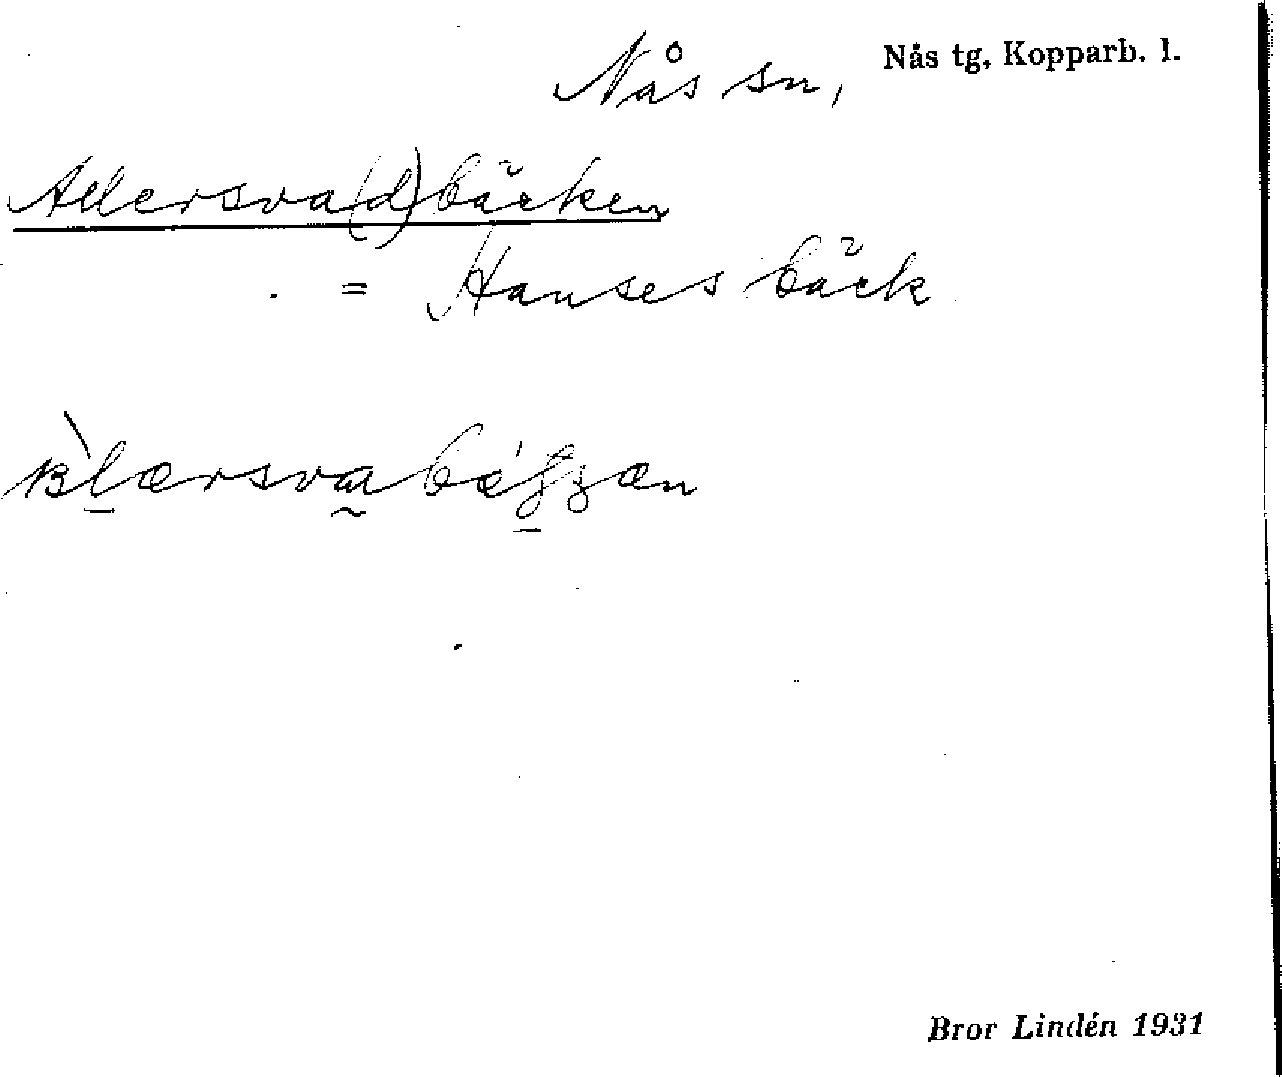 Nås sn, Nås tg, Kopparb. l.
Allersva(d)bäcken
= Hanses bäck
Bror Lindén 1931